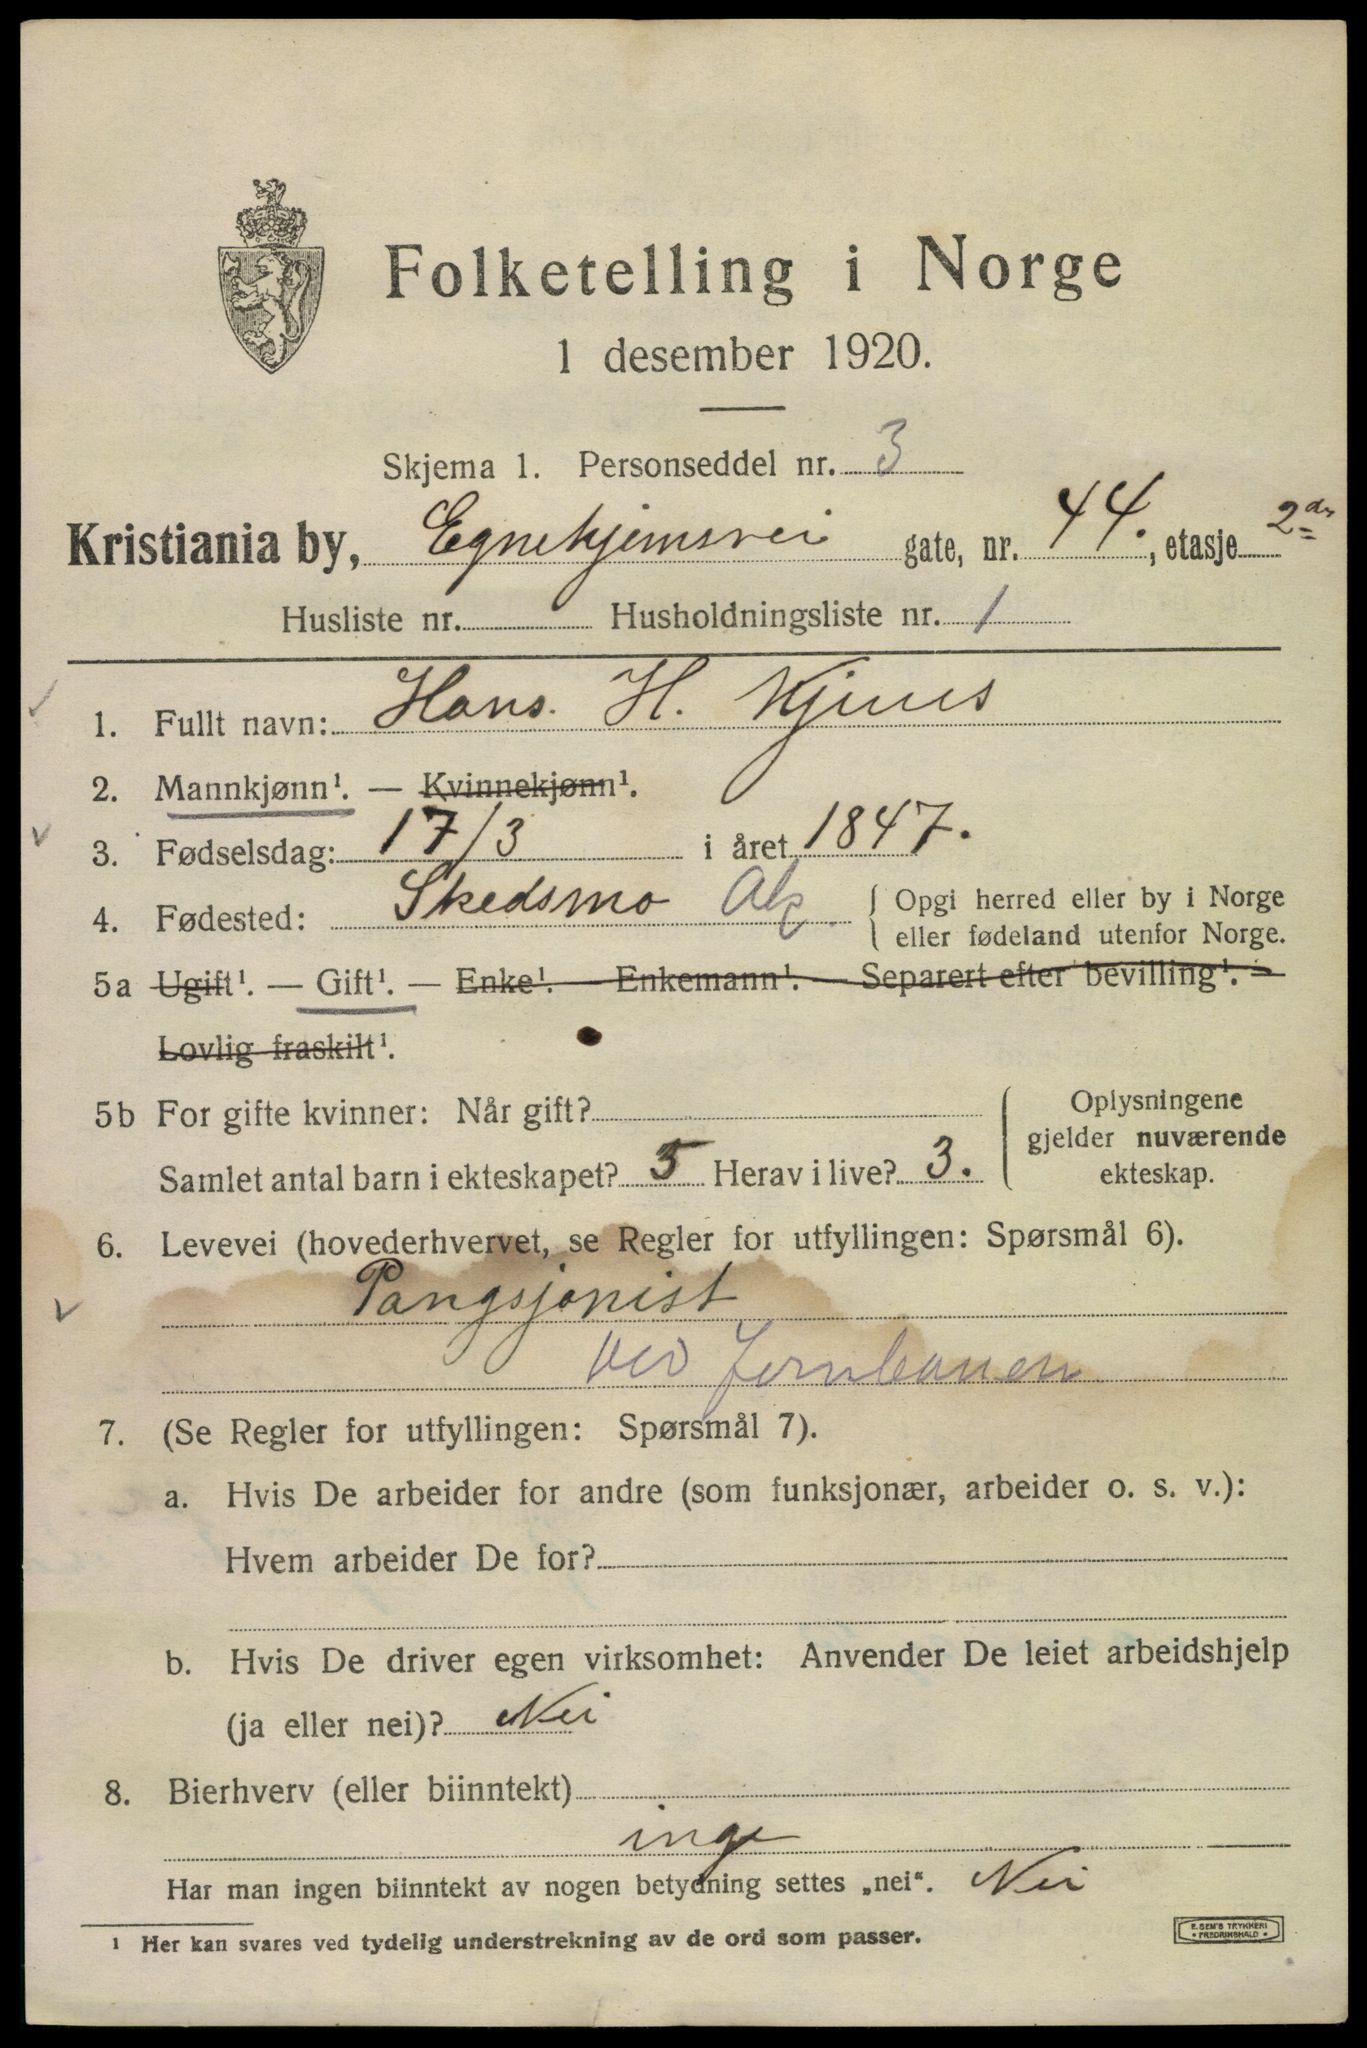 Folketelling i Norge
1 desember 1920.
Skjema 1. Personseddel nr. 3
Kristiania by, Egnehjemsvei gate, nr. 44., etasje 2den
Husliste nr. Husholdningsliste nr. 1
1. Fullt navn: Hans. H.
2. Mannkjønn¹. — Kvinnekjønn¹.
3. Fødselsdag: 17/3 i året 1847.
4. Fødested: Skedsmo Ak. { Opgi herred eller by i Norge
eller fødeland utenfor Norge.
5a Ugift¹. — Gift¹. — Enke¹. — Enkemann¹. — Separert efter bevilling¹. —
Lovlig fraskilt¹.
5b For gifte kvinner: Når gift?
Samlet antal barn i ekteskapet? 5 Herav i live? 3.
Oplysningene
gjelder nuværende
ekteskap.
6. Levevei (hovederhvervet, se Regler for utfyllingen: Spørsmål 6).
Pangsjonist
ved Jernbanen
7. (Se Regler for utfyllingen: Spørsmål 7).
a. Hvis De arbeider for andre (som funksjonær, arbeider o. s. v.):
Hvem arbeider De for?
b. Hvis De driver egen virksomhet: Anvender De leiet arbeidshjelp
(ja eller nei)? Nei
8. Bierhverv (eller biinntekt)
inge
Har man ingen biinntekt av nogen betydning settes „nei“. Nei
¹ Her kan svares ved tydelig understrekning av de ord som passer.
E. SEM'S TRYKKERI
• FREDRIKSHALD •